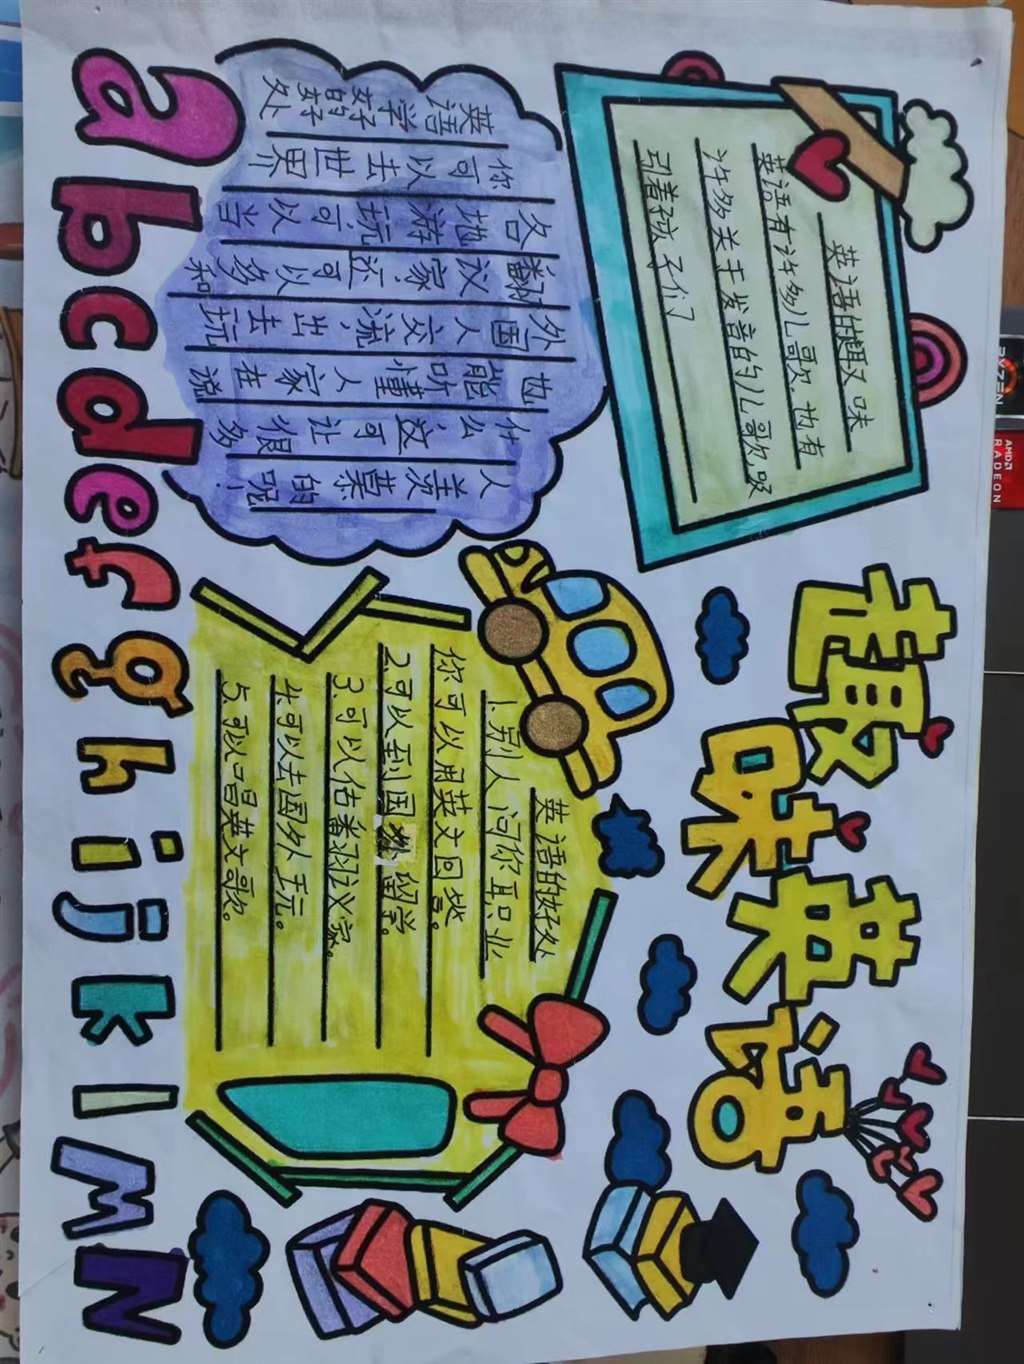 趣味英语
英语的趣味
英语有许多儿歌,也有
许多关于发音的儿歌,吸
引着孩子们
英语学好的好处
你可以去世界
各地游玩,可以当
翻议家,还可以多和
外国人交流,出去玩
能听懂人家在说
什么,这可让很多
人羡慕的呢!
英语的好处
1.别人问你职业
你可以用英文回答。
2.可以到国外留学。
3.可以估翻议家。
4.可以去国外玩。
5.可以唱英文歌。
a b c d e f g h i j k l M N
RYZEN
AMD
RADEON